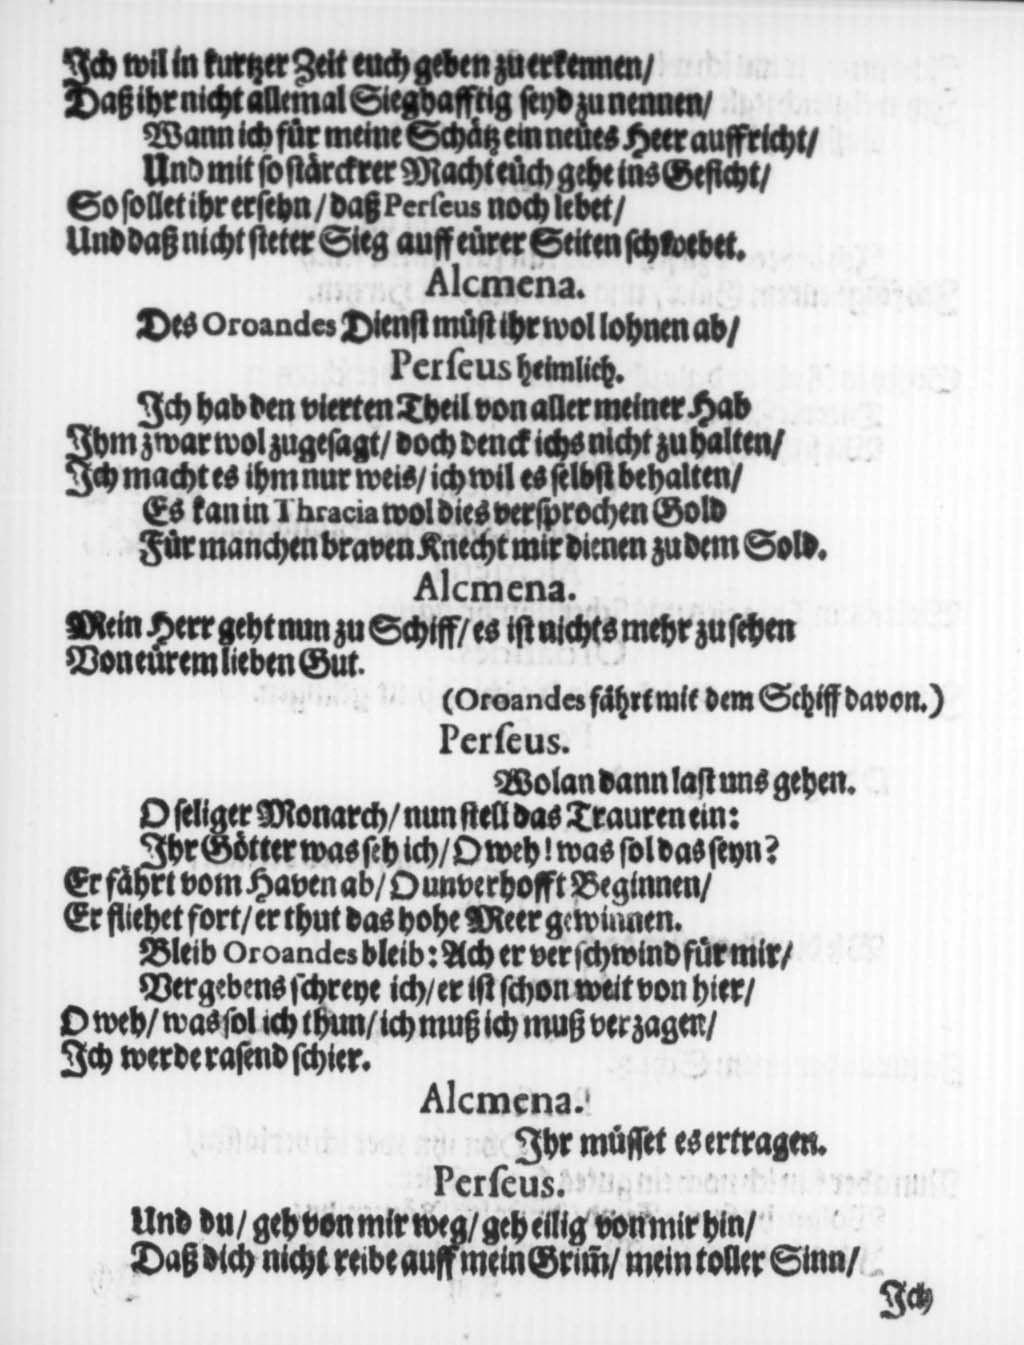 Ich wil in kurtzer Zeit euch geben zu erkennen/
Daß ihr nicht allemal Sieghafftig seyd zu nennen/
Wann ich für meine Schätz ein neües Heer auffricht/
Und mit so stärckrer Macht eüch gehe ins Gesicht/
So sollet ihr ersehn / daß Perseus noch lebet/
Und daß nicht steter Sieg auff eürer Seiten schwebet.
Alcmena.
Des Oroandes Dienst müst ihr wol lohnen ab/
Perseus heimlich.
Ich hab den vierten Theil von aller meiner Hab
Ihm zwar wol zugesagt/ doch denck ichs nicht zu halten/
Ich macht es ihm nur weis/ ich wil es selbst behalten/
Es kan in Thracia wol dies versprochen Gold
Für manchen braven Knecht mir dienen zu dem Sold.
Alcmena.
Mein Herr geht nun zu Schiff/ es ist nichts mehr zu sehen
Von eürem lieben Gut.
(Oroandes fährt mit dem Schiff davon.)
Perseus.
Wolan dann last uns gehen.
O seliger Monarch/ nun stell das Trauren ein:
Ihr Götter was seh ich/ O weh! was sol das seyn?
Er fährt vom Haven ab/ O unverhofft Beginnen/
Er fliehet fort/ er thut das hohe Meer gewinnen.
Bleib Oroandes bleib: Ach er verschwind für mir/
Vergebens schreye ich/ er ist schon weit von hier/
O weh/ was sol ich thun/ ich muß ich muß verzagen/
Ich werde rasend schier.
Alcmena.
Ihr müsset es ertragen.
Perseus.
Und du/ geh von mir weg/ geh eilig von mir hin/
Daß dich nicht reibe auff mein Grim̃/ mein toller Sinn/
Ich